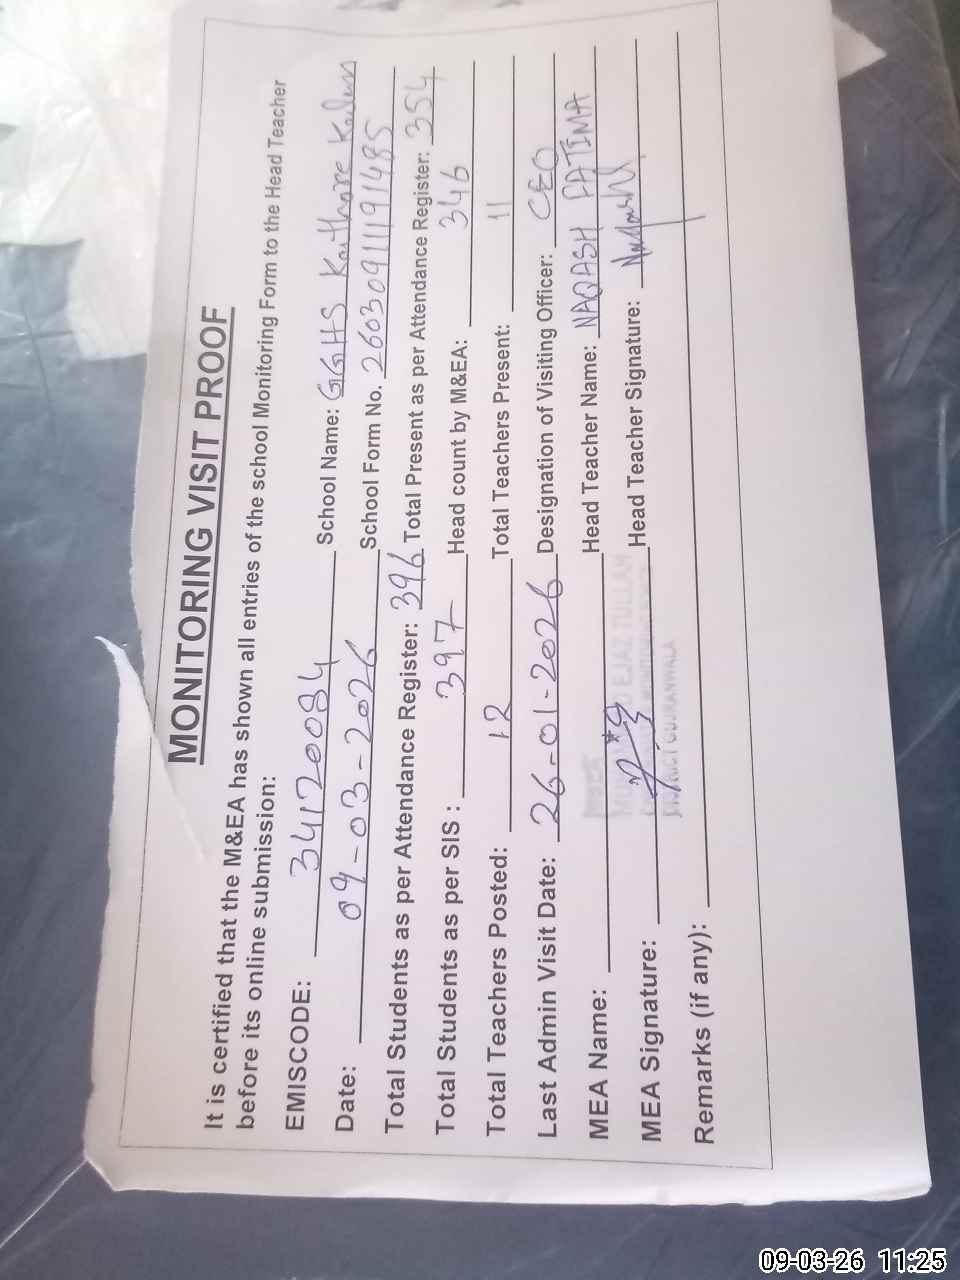 MONITORING VISIT PROOF
It is certified that the M&EA has shown all entries of the school Monitoring Form to the Head Teacher
before its online submission:
EMISCODE: 34120084 School Name: GGHS Kathore Kalan
Date: 09-03-2026 School Form No. 260309111911485
Total Students as per Attendance Register: 396 Total Present as per Attendance Register: 354
Total Students as per SIS : 397 Head count by M&EA: 346
Total Teachers Posted: 12 Total Teachers Present: 11
Last Admin Visit Date: 26-01-2026 Designation of Visiting Officer: CEO
MEA Name: Head Teacher Name: NAQASH FATIMA
EJAZ TULLAH
MEA Signature: Head Teacher Signature: Naqash
DISTRICT GUJRANWALA
Remarks (if any):
09-03-26 11:25